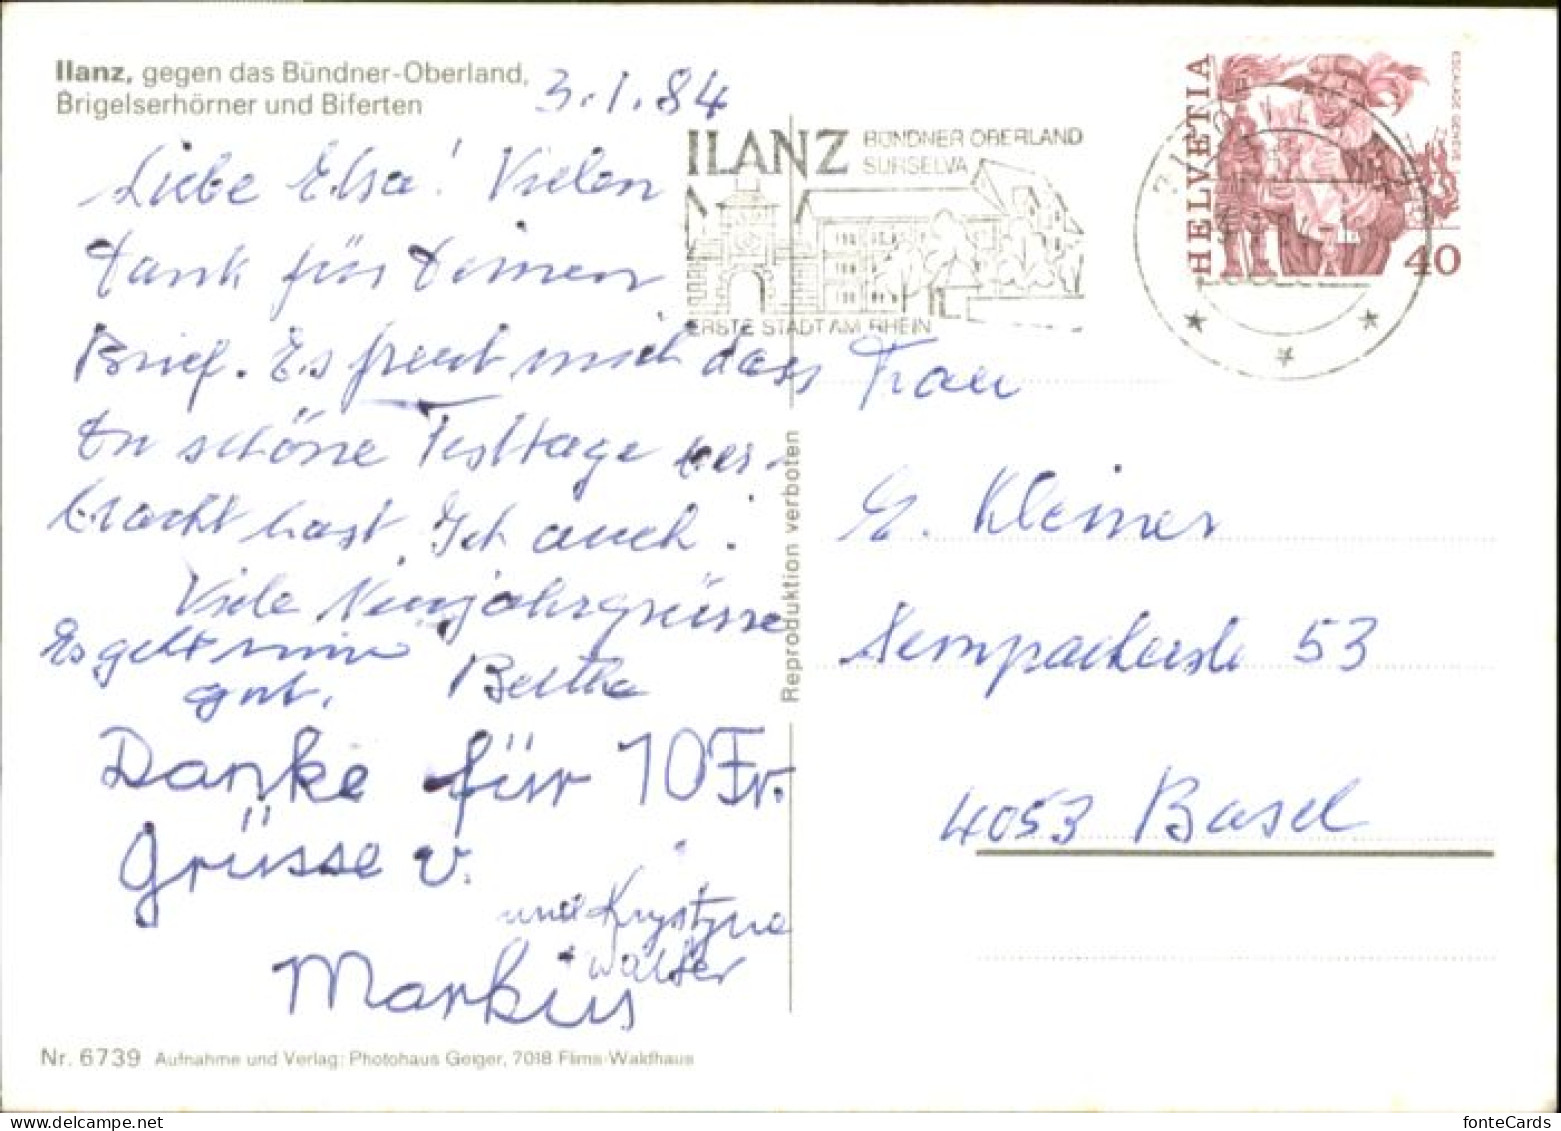 Ilanz, gegen das Bündner-Oberland,
Brigelserhörner und Biferten
3.1.84
Liebe Elsa! Vielen
Dank für Deinen
Brief. Es freut mich dass
Du schöne Festtage ver-
bracht hast. Ich auch.
Viele Neujahrsgrüsse
Es geht mir
gut.
Bertha
Danke für 10 Fr.
Grüsse v.
und Krystyna
+ Walter
Markus
Nr. 6739 Aufnahme und Verlag: Photohaus Geiger, 7018 Flims-Waldhaus
Reproduktion verboten
ILANZ
BÜNDNER OBERLAND
SURSELVA
ERSTE STADT AM RHEIN
HELVETIA
ESCALADE GENÈVE
40
Frau
E. Kleiner
Sempacherstr 53
4053 Basel
fonteCards